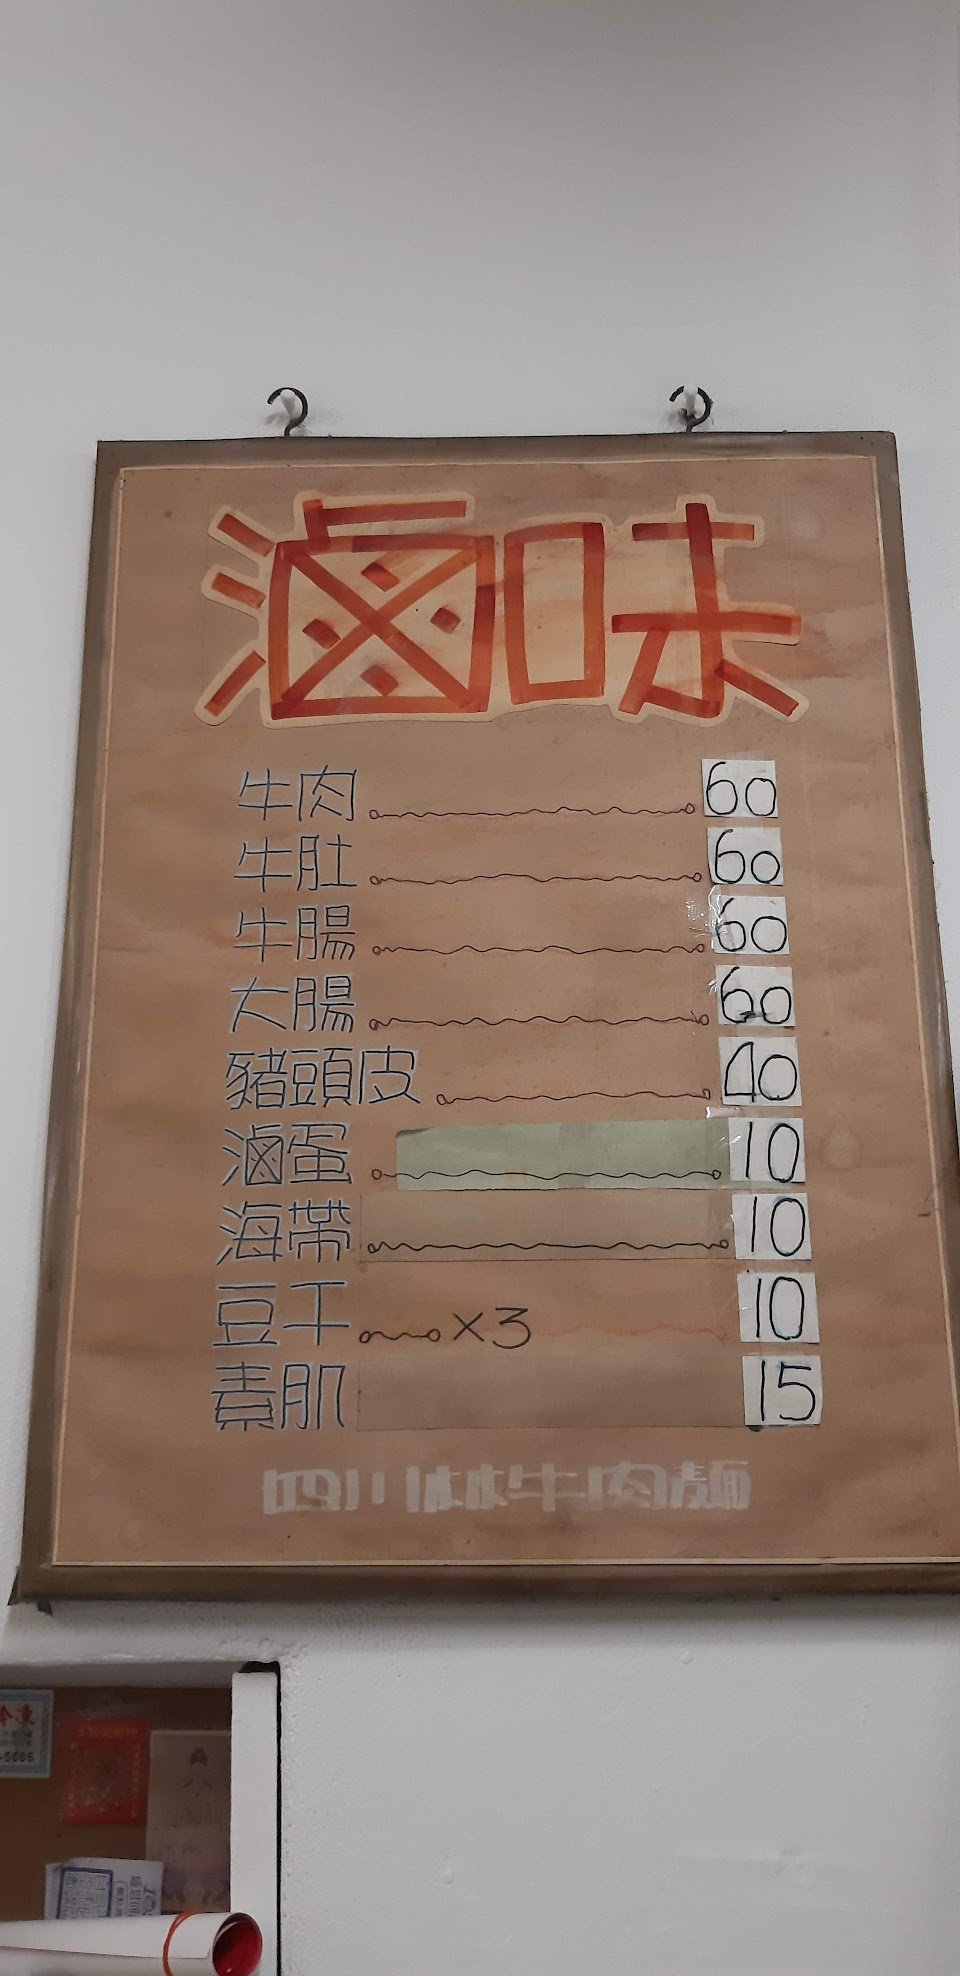 滷味
牛肉 60
牛肚 60
牛腸 60
大腸 60
豬頭皮 40
滷蛋 10
海帶 10
豆干 x3 10
素肌 15
四川林牛肉麵
-5606